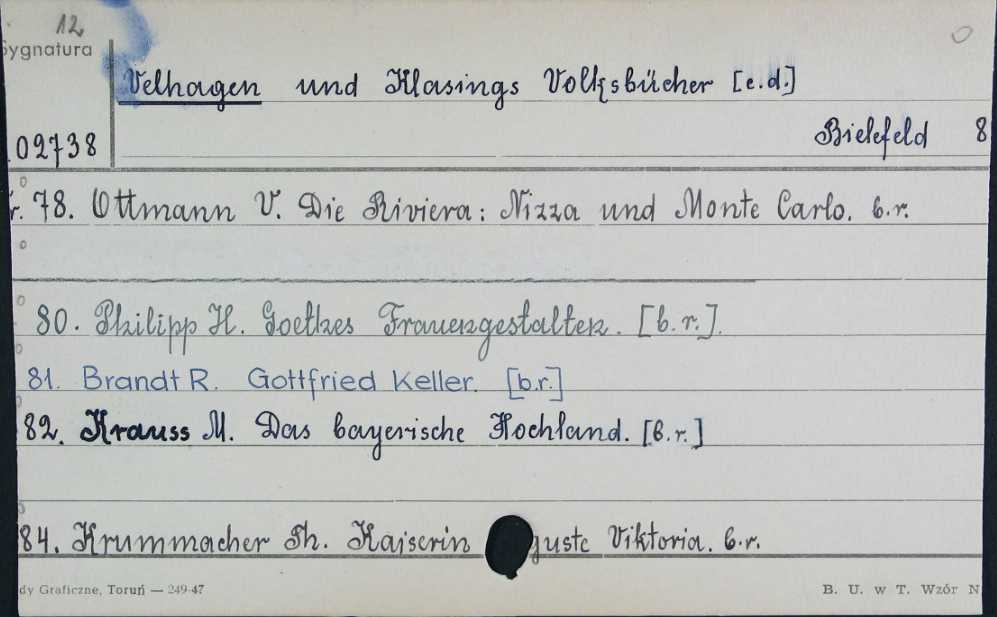 12
Sygnatura
Velhagen und Klasings Volksbücher [e.d.]
02738
Bielefeld 8
r. 78. Ottmann V. Die Riviera: Nizza und Monte Carlo. b.r.
80. Philipp H. Goethes Frauengestalten. [b.r.].
81. Brandt R. Gottfried Keller. [b.r.]
82. Krauss M. Das bayerische Hochland. [b.r.]
84. Krummacher Th. Kaiserin guste Viktoria. b.r.
dy Graficzne, Toruń — 249-47
B. U. w T. Wzór N